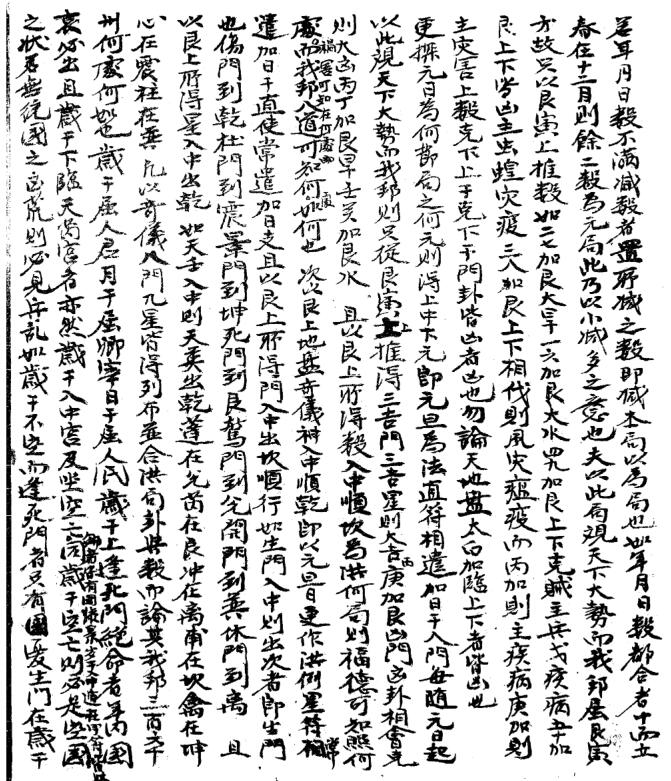 若年月日數不滿減數者置所減之數即減本局以為局也如年月日數都合者十而立
春在十二月則餘二數為元局此乃以小減多之意也夫以此局觀天下大勢而我邦屬艮寅
方故只以艮寅上推數如二七加艮大旱一六加艮大水四九加艮上下克賊主兵戈疾病五十加
艮上下皆凶主虫蝗灾疫三八加艮上下相代則風灾瘟疫而丙加則主疾病庚加則
主灾害上數克下上干克下干門卦皆凶者凶也勿論天地盤太白加臨上下者皆凶也
更探元日為何節局之何元則得上中下元即元旦為法直符相遣加日干入門毎隨元日起
以此觀天下大勢而我邦則只從艮寅上推得三吉門三吉星則大吉庚丙加艮凶門凶卦相會克
則大凶丙丁加艮旱壬癸加艮水 且以艮上所得數入中順坎為洪何局則福德可知照何
處而我邦八道可知何如何也 次以艮上地盤奇儀神入中順乾即以元旦日更作洪例星符相
遣加日干直使常遣加日支且以艮上所得門入中出坎順行如生門入中則出次者即生門
也傷門到乾杜門到震景門到坤死門到艮驚門到兌開門到巽休門到离 且
以艮上所得星入中出乾 如天壬入中則天英出乾蓬在兌芮在艮沖在离甫在坎禽在坤
心在震柱在巽 凡以奇儀八門九星皆得列布並合洪局卦與數而論其我邦三百六十
州何處何如也 歲干屬人君月干屬卿宰日干屬人民 歲干上逢死門絕命者
哀必出且歲干下臨天芮宮者亦然歲干入中宮及坐空亡
之狀 國之凶荒則必見兵乱如歲干不空而逢死門者只有國憂生門在歲干